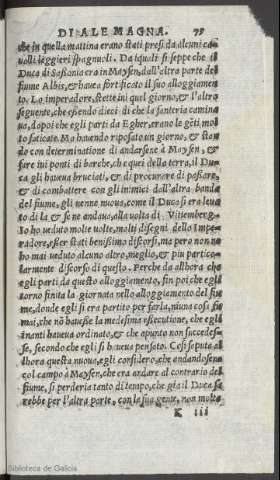 DI ALE MAGNA. 75
che in quella mattina erano stati presi da alcuni ca
ualli leggieri spagnuoli. Da iquali si seppe che il
Duca di Sassonia era in Maysen, dall'altra parte del
fiume Albis, et haueua fortificato il suo alloggiamen
to. Lo imperadore, stette iui quel giorno, & l'altro
seguente, che essendo dieci dì che la fanteria camina
ua, dapoi che egli partì da Egher, erano le genti mol
to faticate. Ma hauendo riposato un giorno, & stan
do con determinatione di andarsene à Maysen, &
fare iui ponti di barche, che quei della terra, il Du
ca gli haueua bruciati, & di procurare di passare,
& di combattere con gli inimici dall'altra banda
del fiume, gli uenne nuoua, come il Duca si era leua
to di la & se ne andaua, alla uolta di Vitiemberg.
Io ho ueduto molte uolte, molti disegni dello Impe
radore, esser stati benissimo discorsi, ma pero non ne
ho mai ueduto alcuno altro, meglio, & piu partico
larmente discorso di questo. Perche da allhora che
egli partì da questo alloggiamento, fin poi che egli
torno finita la giornata nello alloggiamento del fiu
me, donde egli si era partito per farla, niuna cosa fu
mai, che nō hauesse la medesima essecutione, che egli
inanti haueua ordinato, & che apunto non succedes-
se, secondo che egli si haueua pensato. Così saputa al
lhora questa nuoua, egli considerò, che andandosene
col campo à Maysen, che era andare al contrario del
fiume, si perderia tanto di tempo, che già il Duca sa
rebbe per l'altra parte, con la sua gente, non molto
K iii
Biblioteca de Galicia